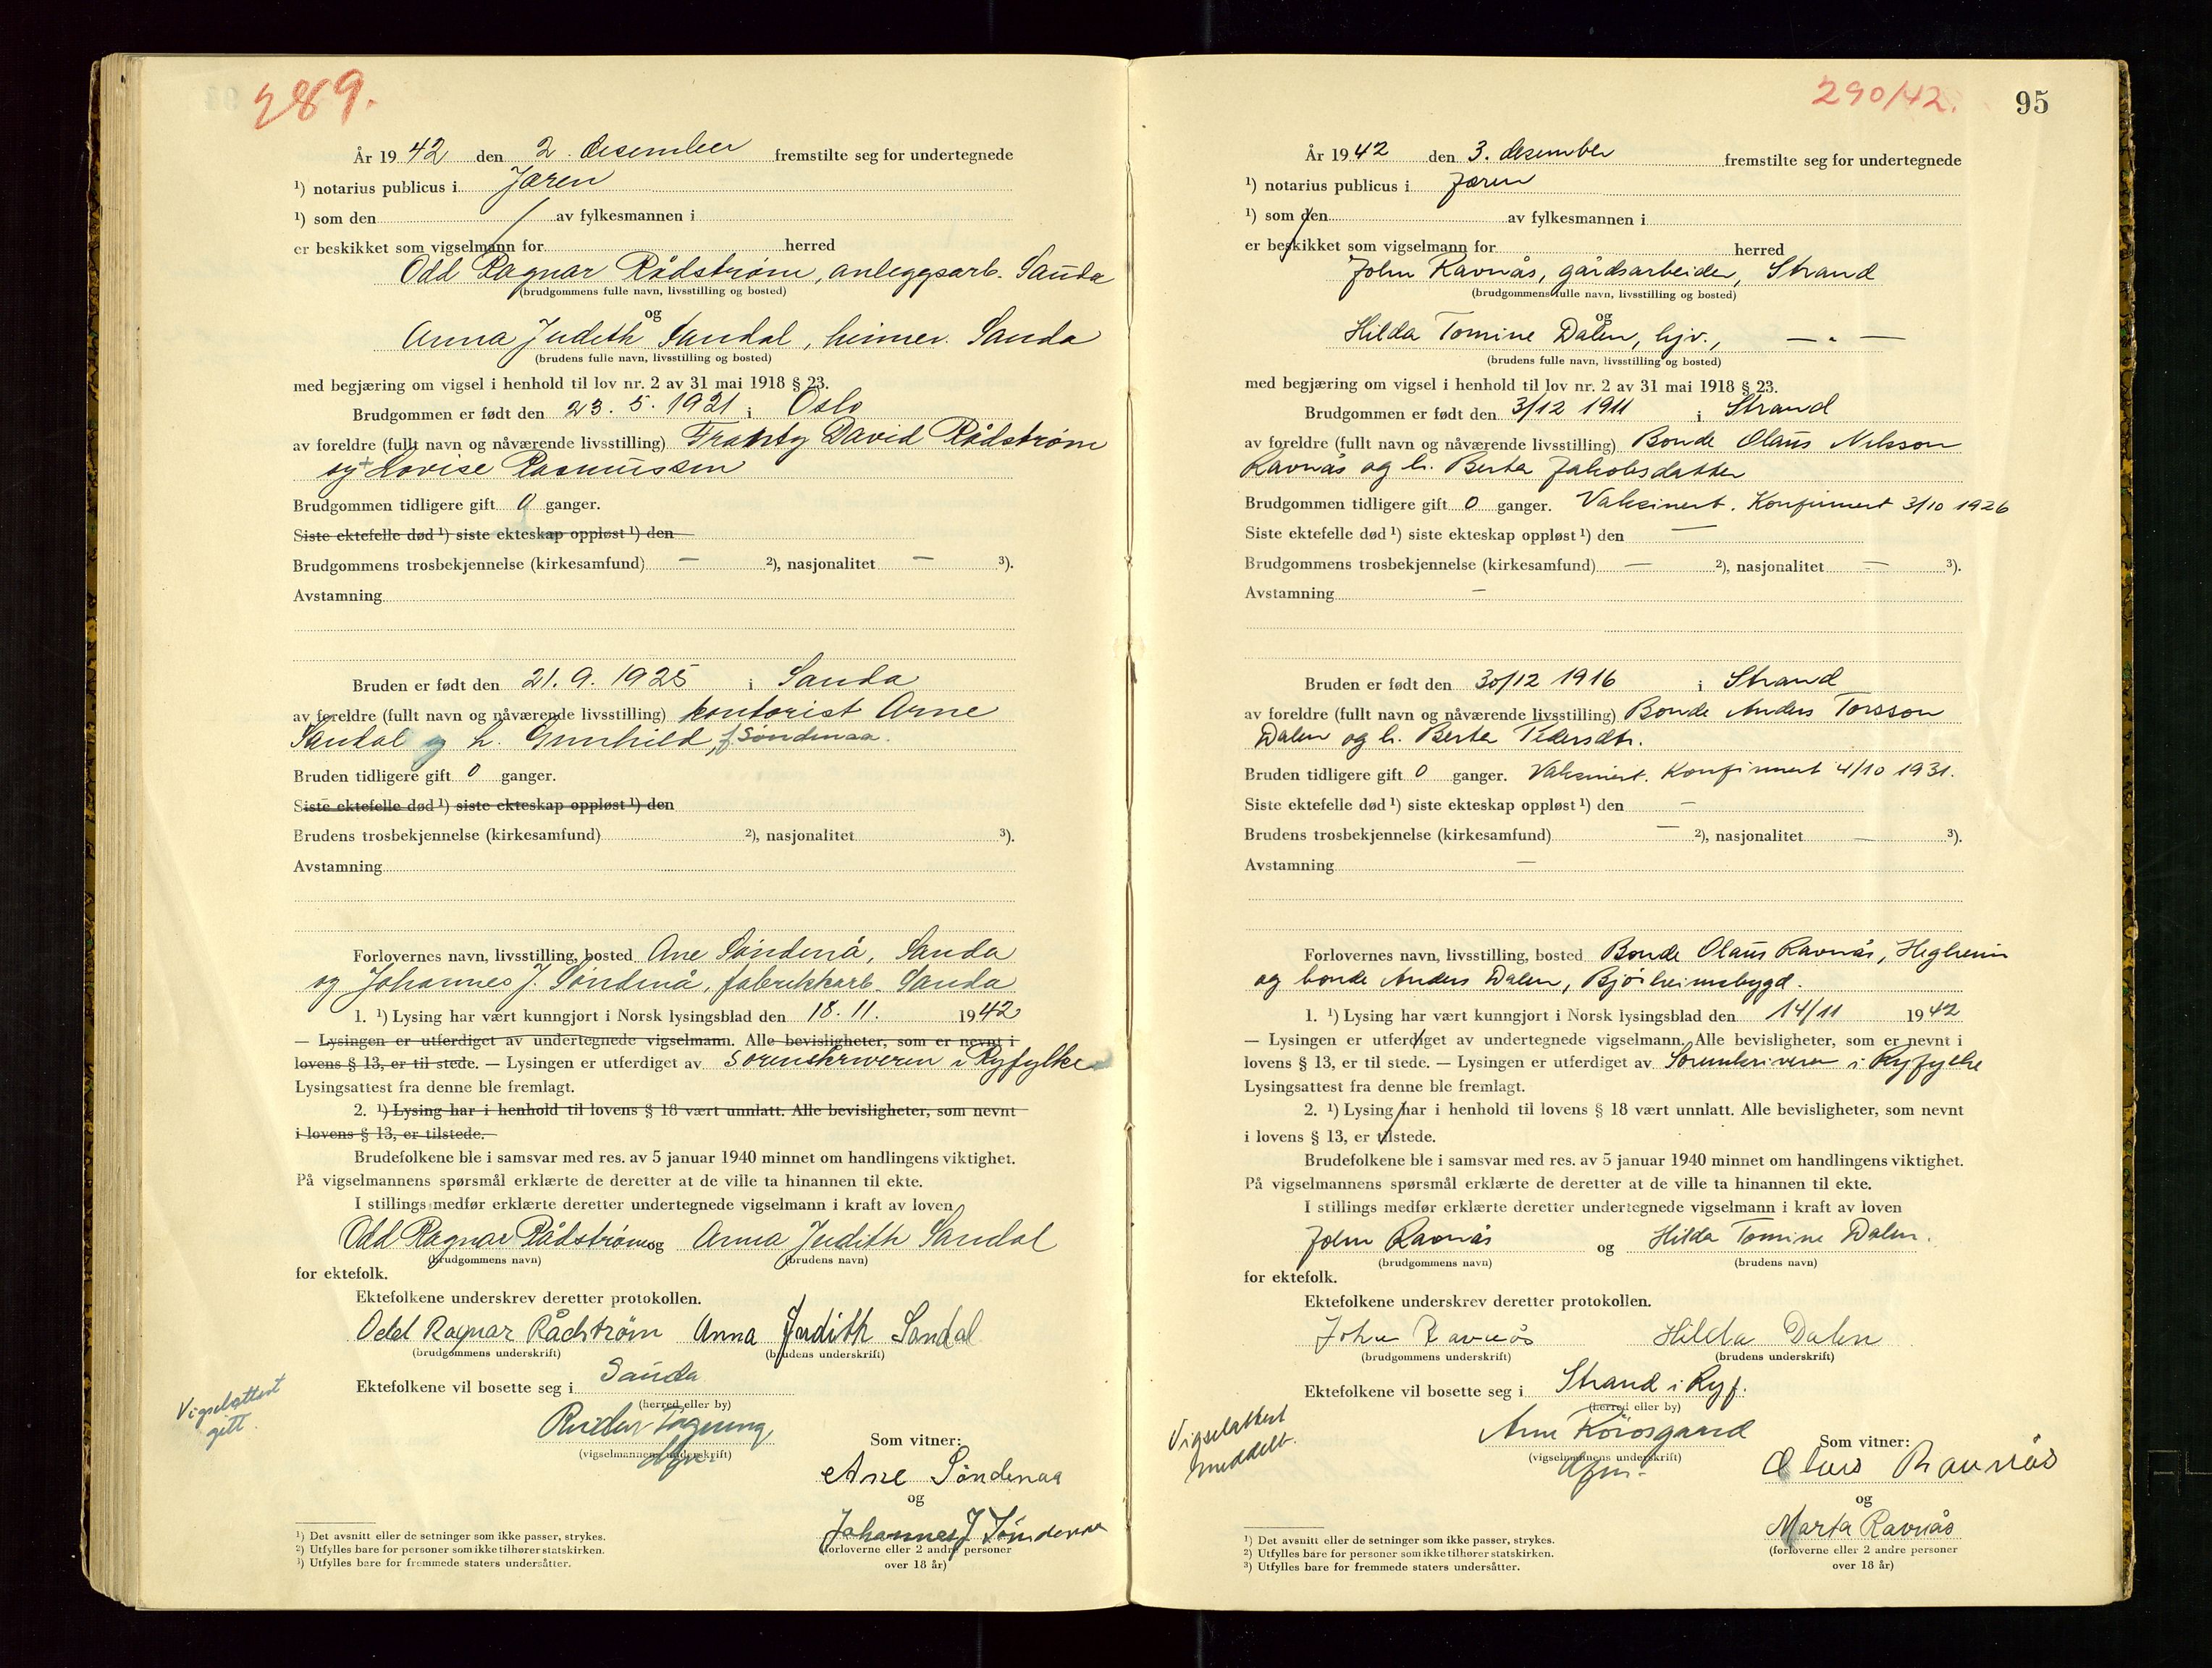 289.
År 1942 den 2. desember fremstilte seg for undertegnede
¹) notarius publicus i Jæren
¹) som den av fylkesmannen i
er beskikket som vigselmann for herred
Odd Ragnar Rådstrøm, anleggsarb. Sauda
(brudgommens fulle navn, livsstilling og bosted)
og
Anna Judith Sandal, heimev. Sauda
(brudens fulle navn, livsstilling og bosted)
med begjæring om vigsel i henhold til lov nr. 2 av 31 mai 1918 § 23.
Brudgommen er født den 23. 5. 1921 i Oslo
av foreldre (fullt navn og nåværende livsstilling) David Rådstrøm
og Lovise Rasmussen
Brudgommen tidligere gift 0 ganger.
Siste ektefelle død ¹) siste ekteskap oppløst ¹) den
Brudgommens trosbekjennelse (kirkesamfund) — ²), nasjonalitet — ³).
Avstamning
Bruden er født den 21. 9. 1925 i Sauda
av foreldre (fullt navn og nåværende livsstilling) kontorist Arne
Sandal og h. Gunhild, f. Søndenaa.
Bruden tidligere gift 0 ganger.
Siste ektefelle død ¹) siste ekteskap oppløst ¹) den
Brudens trosbekjennelse (kirkesamfund) ²), nasjonalitet ³).
Avstamning
Forlovernes navn, livsstilling, bosted Ane Søndenå, Sauda
og Johannes J. Søndenå, fabrikkarb. Sauda
1. ¹) Lysing har vært kunngjort i Norsk lysingsblad den 18. 11. 1942
— Lysingen er utferdiget av undertegnede vigselmann. Alle bevisligheter, som er nevnt i
lovens § 13, er til stede. — Lysingen er utferdiget av sorenskriveren i Ryfylke
Lysingsattest fra denne ble fremlagt.
2. ¹) Lysing har i henhold til lovens § 18 vært unnlatt. Alle bevisligheter, som nevnt
i lovens § 13, er tilstede.
Brudefolkene ble i samsvar med res. av 5 januar 1940 minnet om handlingens viktighet.
På vigselmannens spørsmål erklærte de deretter at de ville ta hinannen til ekte.
I stillings medfør erklærte deretter undertegnede vigselmann i kraft av loven
Odd Ragnar Rådstrøm og Anna Judith Sandal
(brudgommens navn) (brudens navn)
for ektefolk.
Ektefolkene underskrev deretter protokollen.
Odd Ragnar Rådstrøm Anna Judith Sandal
(brudgommens underskrift) (brudens underskrift)
Ektefolkene vil bosette seg i Sauda
(herred eller by)
Vigselattest
gitt.
(vigselmannens underskrift)
Som vitner:
Ane Søndenaa
og
Johannes J Søndenaa
(forloverne eller 2 andre personer
over 18 år)
¹) Det avsnitt eller de setninger som ikke passer, strykes.
²) Utfylles bare for personer som ikke tilhører statskirken.
³) Utfylles bare for fremmede staters undersåtter.
290/42.
95
År 1942 den 3. desember fremstilte seg for undertegnede
¹) notarius publicus i Jæren
¹) som den av fylkesmannen i
er beskikket som vigselmann for herred
John Ravnås, gårdsarbeider, Strand
(brudgommens fulle navn, livsstilling og bosted)
og
Hilda Tomine Dalen, hjv., — " —
(brudens fulle navn, livsstilling og bosted)
med begjæring om vigsel i henhold til lov nr. 2 av 31 mai 1918 § 23.
Brudgommen er født den 3/12 1911 i Strand
av foreldre (fullt navn og nåværende livsstilling) Bonde Olaus Nilsson
Ravnås og h. Berta Jakobsdatter
Brudgommen tidligere gift 0 ganger. Vaksinert. Konfirmert 3/10 1926
Siste ektefelle død ¹) siste ekteskap oppløst ¹) den —
Brudgommens trosbekjennelse (kirkesamfund) — ²), nasjonalitet — ³).
Avstamning —
Bruden er født den 30/12 1916 i Strand
av foreldre (fullt navn og nåværende livsstilling) Bonde Anders Torsson
Dalen og h. Berta Pedersdtr.
Bruden tidligere gift 0 ganger. Vaksinert. Konfirmert 4/10 1931.
Siste ektefelle død ¹) siste ekteskap oppløst ¹) den —
Brudens trosbekjennelse (kirkesamfund) — ²), nasjonalitet — ³).
Avstamning —
Forlovernes navn, livsstilling, bosted Bonde Olaus Ravnås, Hegheim
og bonde Anders Dalen, Bjørheimsbygd.
1. ¹) Lysing har vært kunngjort i Norsk lysingsblad den 14/11 1942
— Lysingen er utferdiget av undertegnede vigselmann. Alle bevisligheter, som er nevnt i
lovens § 13, er til stede. — Lysingen er utferdiget av Sorenskriveren i Ryfylke
Lysingsattest fra denne ble fremlagt.
2. ¹) Lysing har i henhold til lovens § 18 vært unnlatt. Alle bevisligheter, som nevnt
i lovens § 13, er tilstede.
Brudefolkene ble i samsvar med res. av 5 januar 1940 minnet om handlingens viktighet.
På vigselmannens spørsmål erklærte de deretter at de ville ta hinannen til ekte.
I stillings medfør erklærte deretter undertegnede vigselmann i kraft av loven
John Ravnås og Hilda Tomine Dalen.
(brudgommens navn) (brudens navn)
for ektefolk.
Ektefolkene underskrev deretter protokollen.
John Ravnås Hilda Dalen
(brudgommens underskrift) (brudens underskrift)
Ektefolkene vil bosette seg i Strand i Ryf.
(herred eller by)
Vigselattest
meddelt.
(vigselmannens underskrift)
Som vitner:
Olaus Ravnås
og
Marta Ravnås
(forloverne eller 2 andre personer
over 18 år)
¹) Det avsnitt eller de setninger som ikke passer, strykes.
²) Utfylles bare for personer som ikke tilhører statskirken.
³) Utfylles bare for fremmede staters undersåtter.